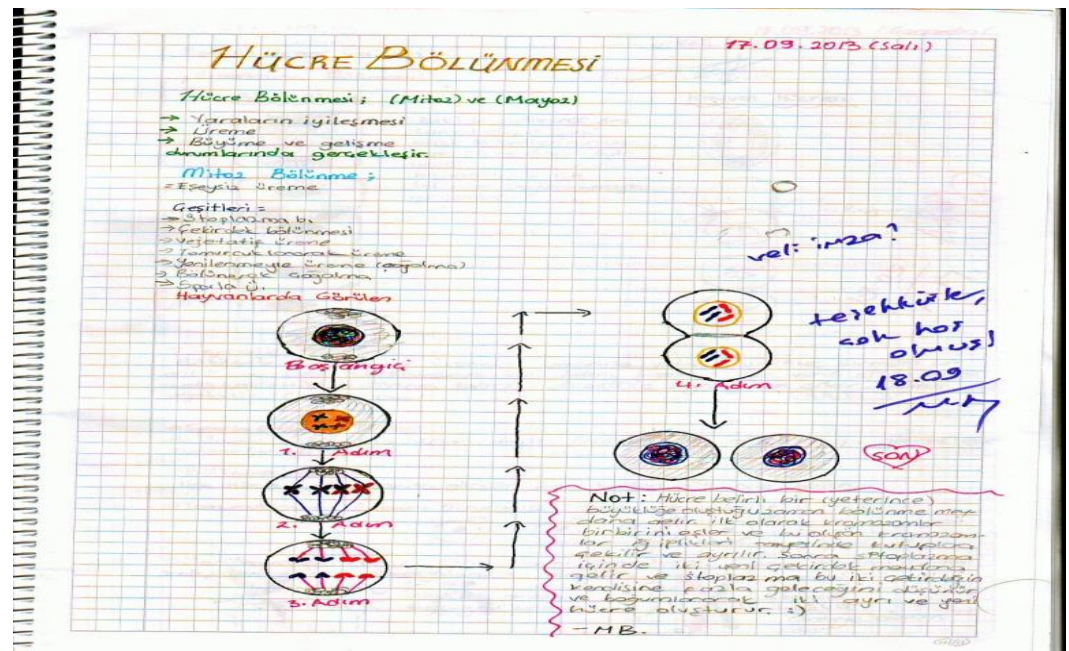 17.09.2013 (Salı)
HÜCRE BÖLÜNMESİ
Hücre Bölünmesi; (Mitoz) ve (Mayoz)
→ Yaraların iyileşmesi
→ Üreme
→ Büyüme ve gelişme
durumlarında gerçekleşir.
Mitoz Bölünme;
= Eşeysiz üreme
Çeşitleri =
→ Stoplazma b.
→ Çekirdek bölünmesi
→ Vejetatif üreme
→ Tomurcuklanarak üreme
→ Yenilenmeyle üreme (çoğalma)
→ Bölünerek çoğalma
→ Sporla Ü.
Hayvanlarda Görülen
Başlangıç
1. Adım
2. Adım
3. Adım
4. Adım
SON
veli imza?
teşekkürler,
çok hoş
olmuş!
18.09
Not: Hücre belirli bir (yeterince)
büyüklüğe oluştuğu zaman bölünme mey-
dana gelir. İlk olarak kromozomlar
birbirini eşler ve bu oluşan kromozom-
lar iğ iplikleri kutuplara
çekilir ve ayrılır. Sonra stoplazma
içinde iki yeni çekirdek meydana
gelir ve stoplazma bu iki çekirdeğin
kendisine fazla geleceğini düşünür
ve boğumlanarak iki ayrı ve yeni
hücre oluşturur. :)
- MB.